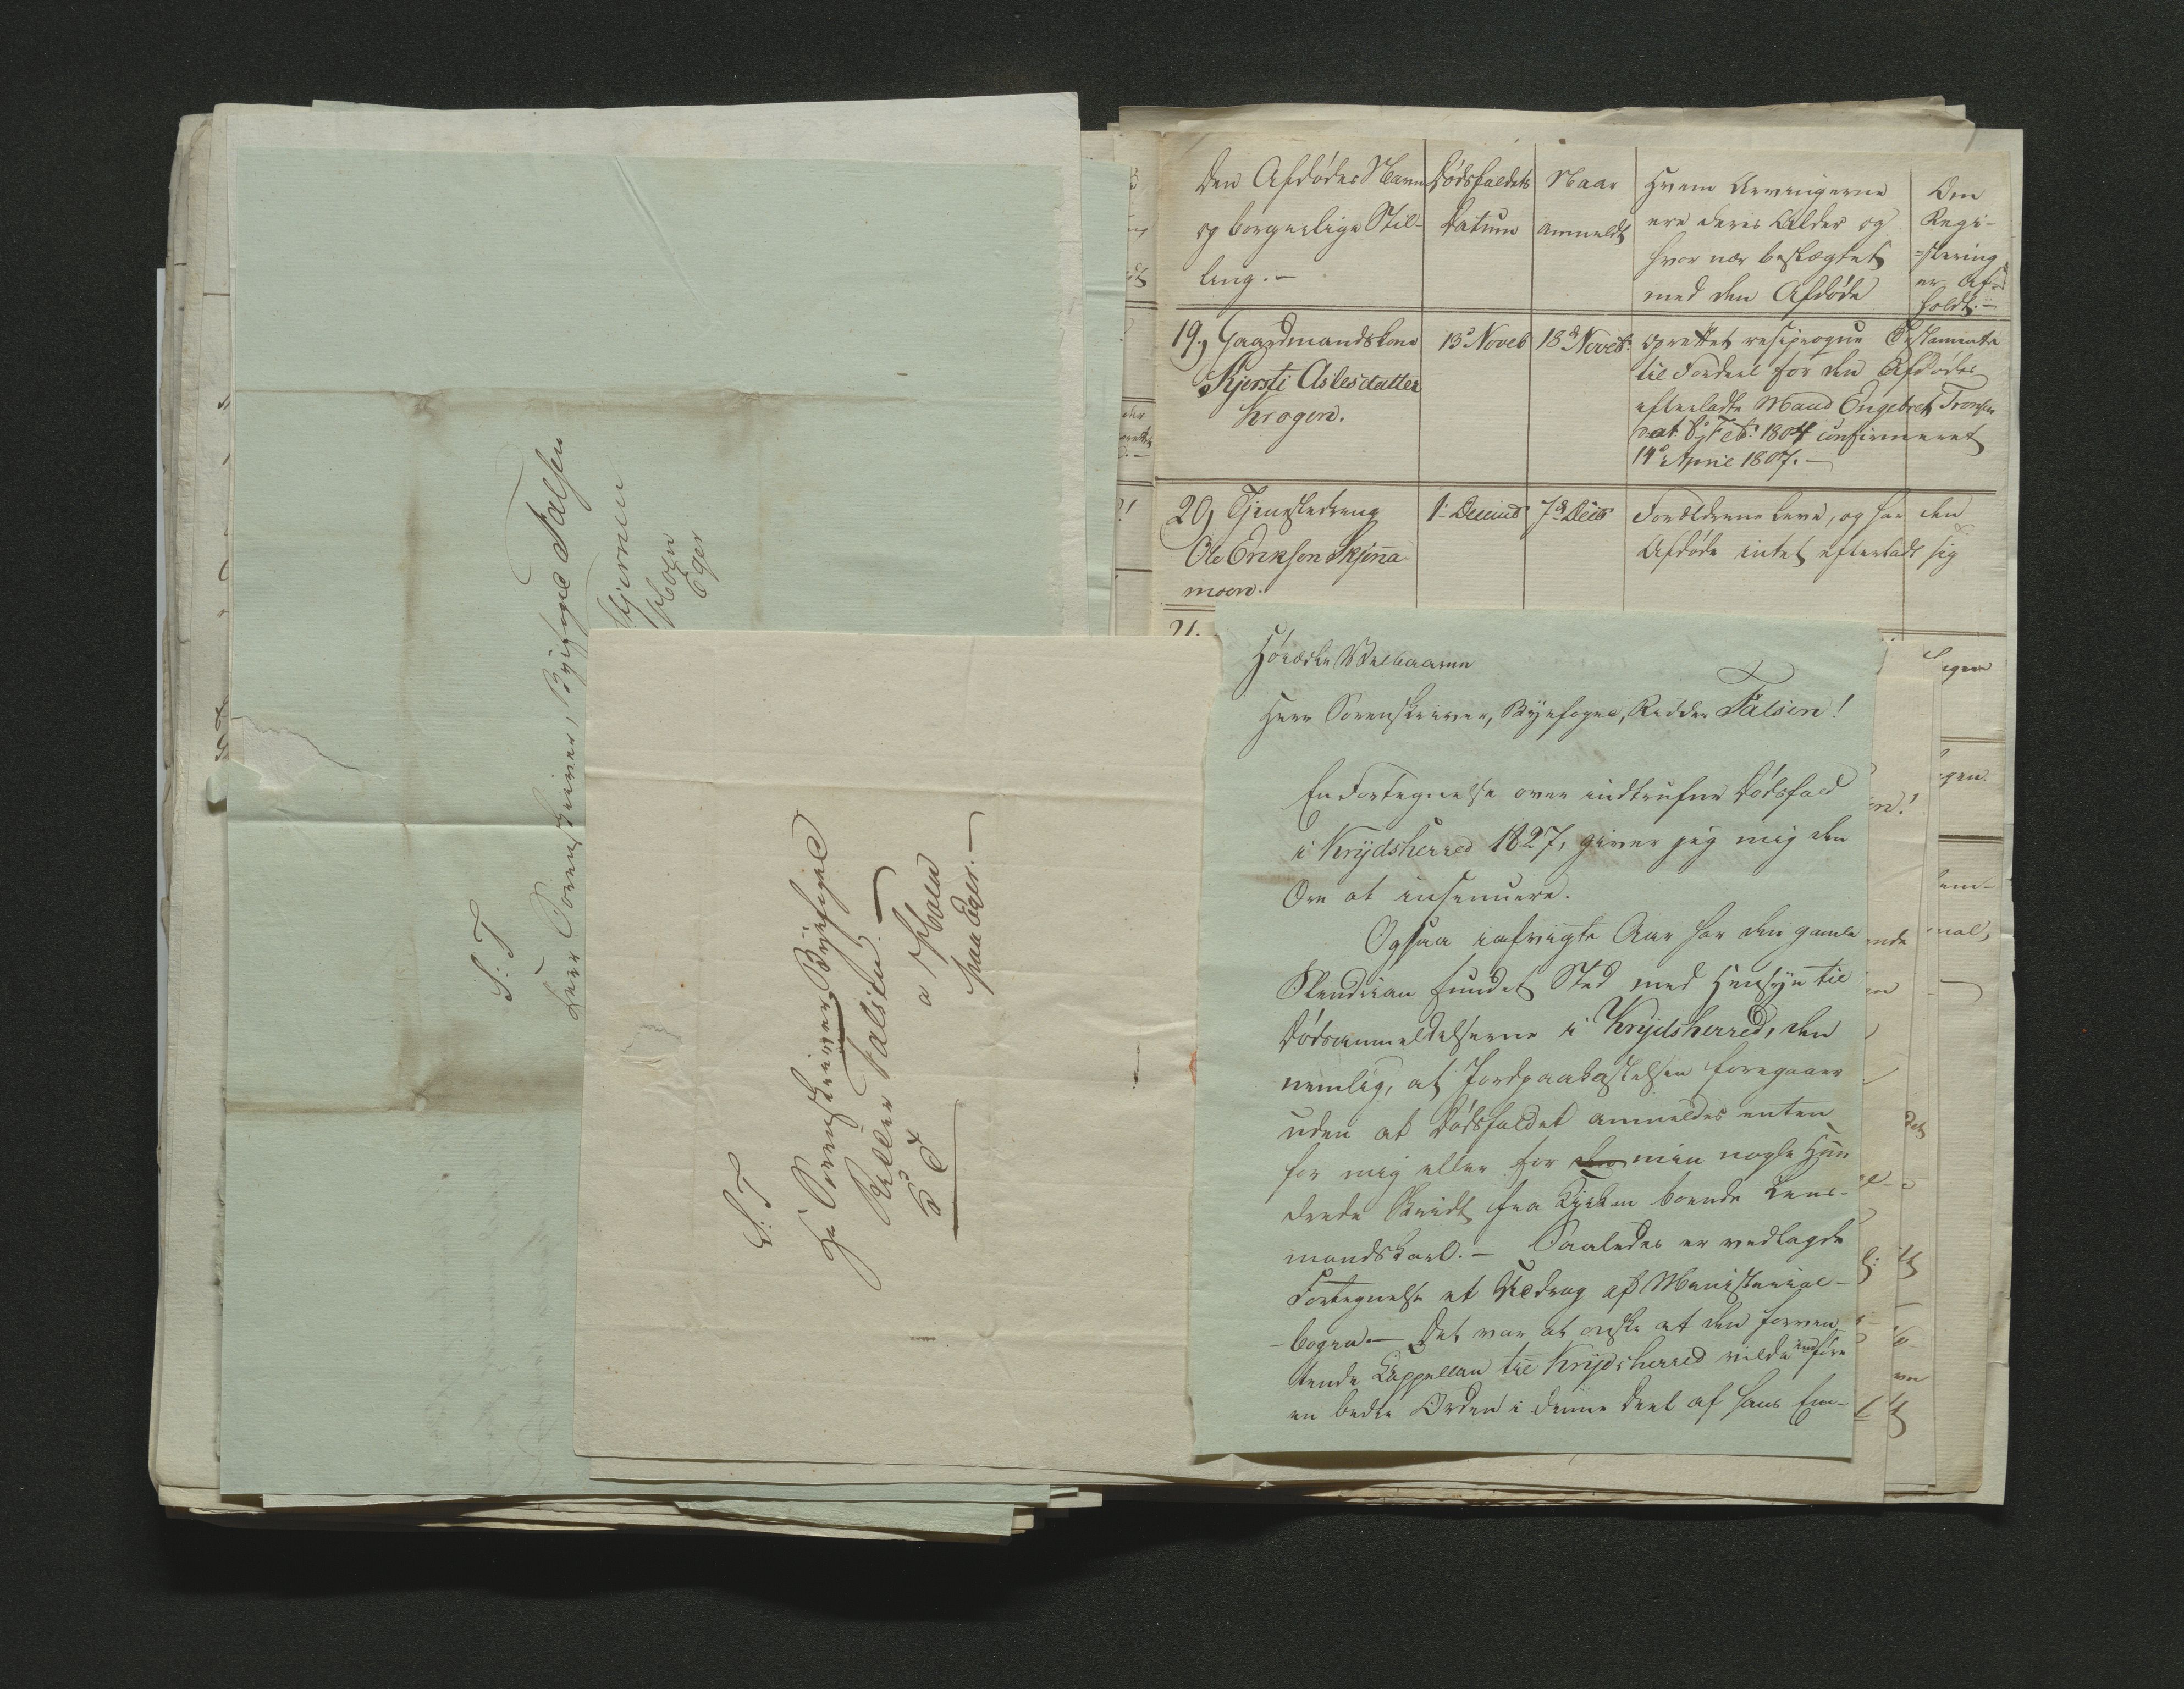 S: T
Herr Sorenskriver, Byefoged Falsen
Hoen
Eger
S: T
Hr Sorenskriver, Byefoged
Ridder Falsen
a Hoen
paa Eger.—
Den Afdødes Navn
og borgerlige Stil-
ling.—
Dødsfaldets
Datum
Naar
anmeldt
Hvem Arvingerne
ere deres Alder og
hvor nær beslægtet
med den Afdøde
Om
Regi-
strering
er Af-
holdt.—
19, Gaardmandskone
Kjersti Aslesdatter
Krogen.
13d Noveb
18d Noveb:
oprettet resiproque Testamente
til Fordeel for den Afdødes
efterladte Mand Engebret Tronsen
dat. 8d Feb: 1804 confirmeret
14d April 1807.—
20, Tjenestedreng
Ole Erikson Skjæra-
moen.
1d Decemb
7d Decb
Forældrene leve, og har den
Afdøde intet efterladt sig
21.
Høiædle Velbaarne
Herr Sorenskriver, Byefoged, Ridder Falsen!
En Fortegnelse over indtrufne Dødsfald
i Krydsherred 1827, giver jeg mig den
Ære at insinuere.
Ogsaa iafvigte Aar har den gamle
Slendrian fundet Sted med Hensyn til
Dødsanmeldelserne i Krydsherred, den
nemlig, at Jordpaakastelsen foregaaer
uden at Dødsfaldet anmeldes enten
for mig eller for den nogle Hun
drede Skridt fra Kirken boende Lens-
mandskarl.— Saaledes er vedlagde
Fortegnelse et Uddrag af Ministerial-
bogen.— Det var at ønske at den forven
tende Cappellan til Krydsherred vilde indføre
en bedre Orden i denne Deel af hans Em-